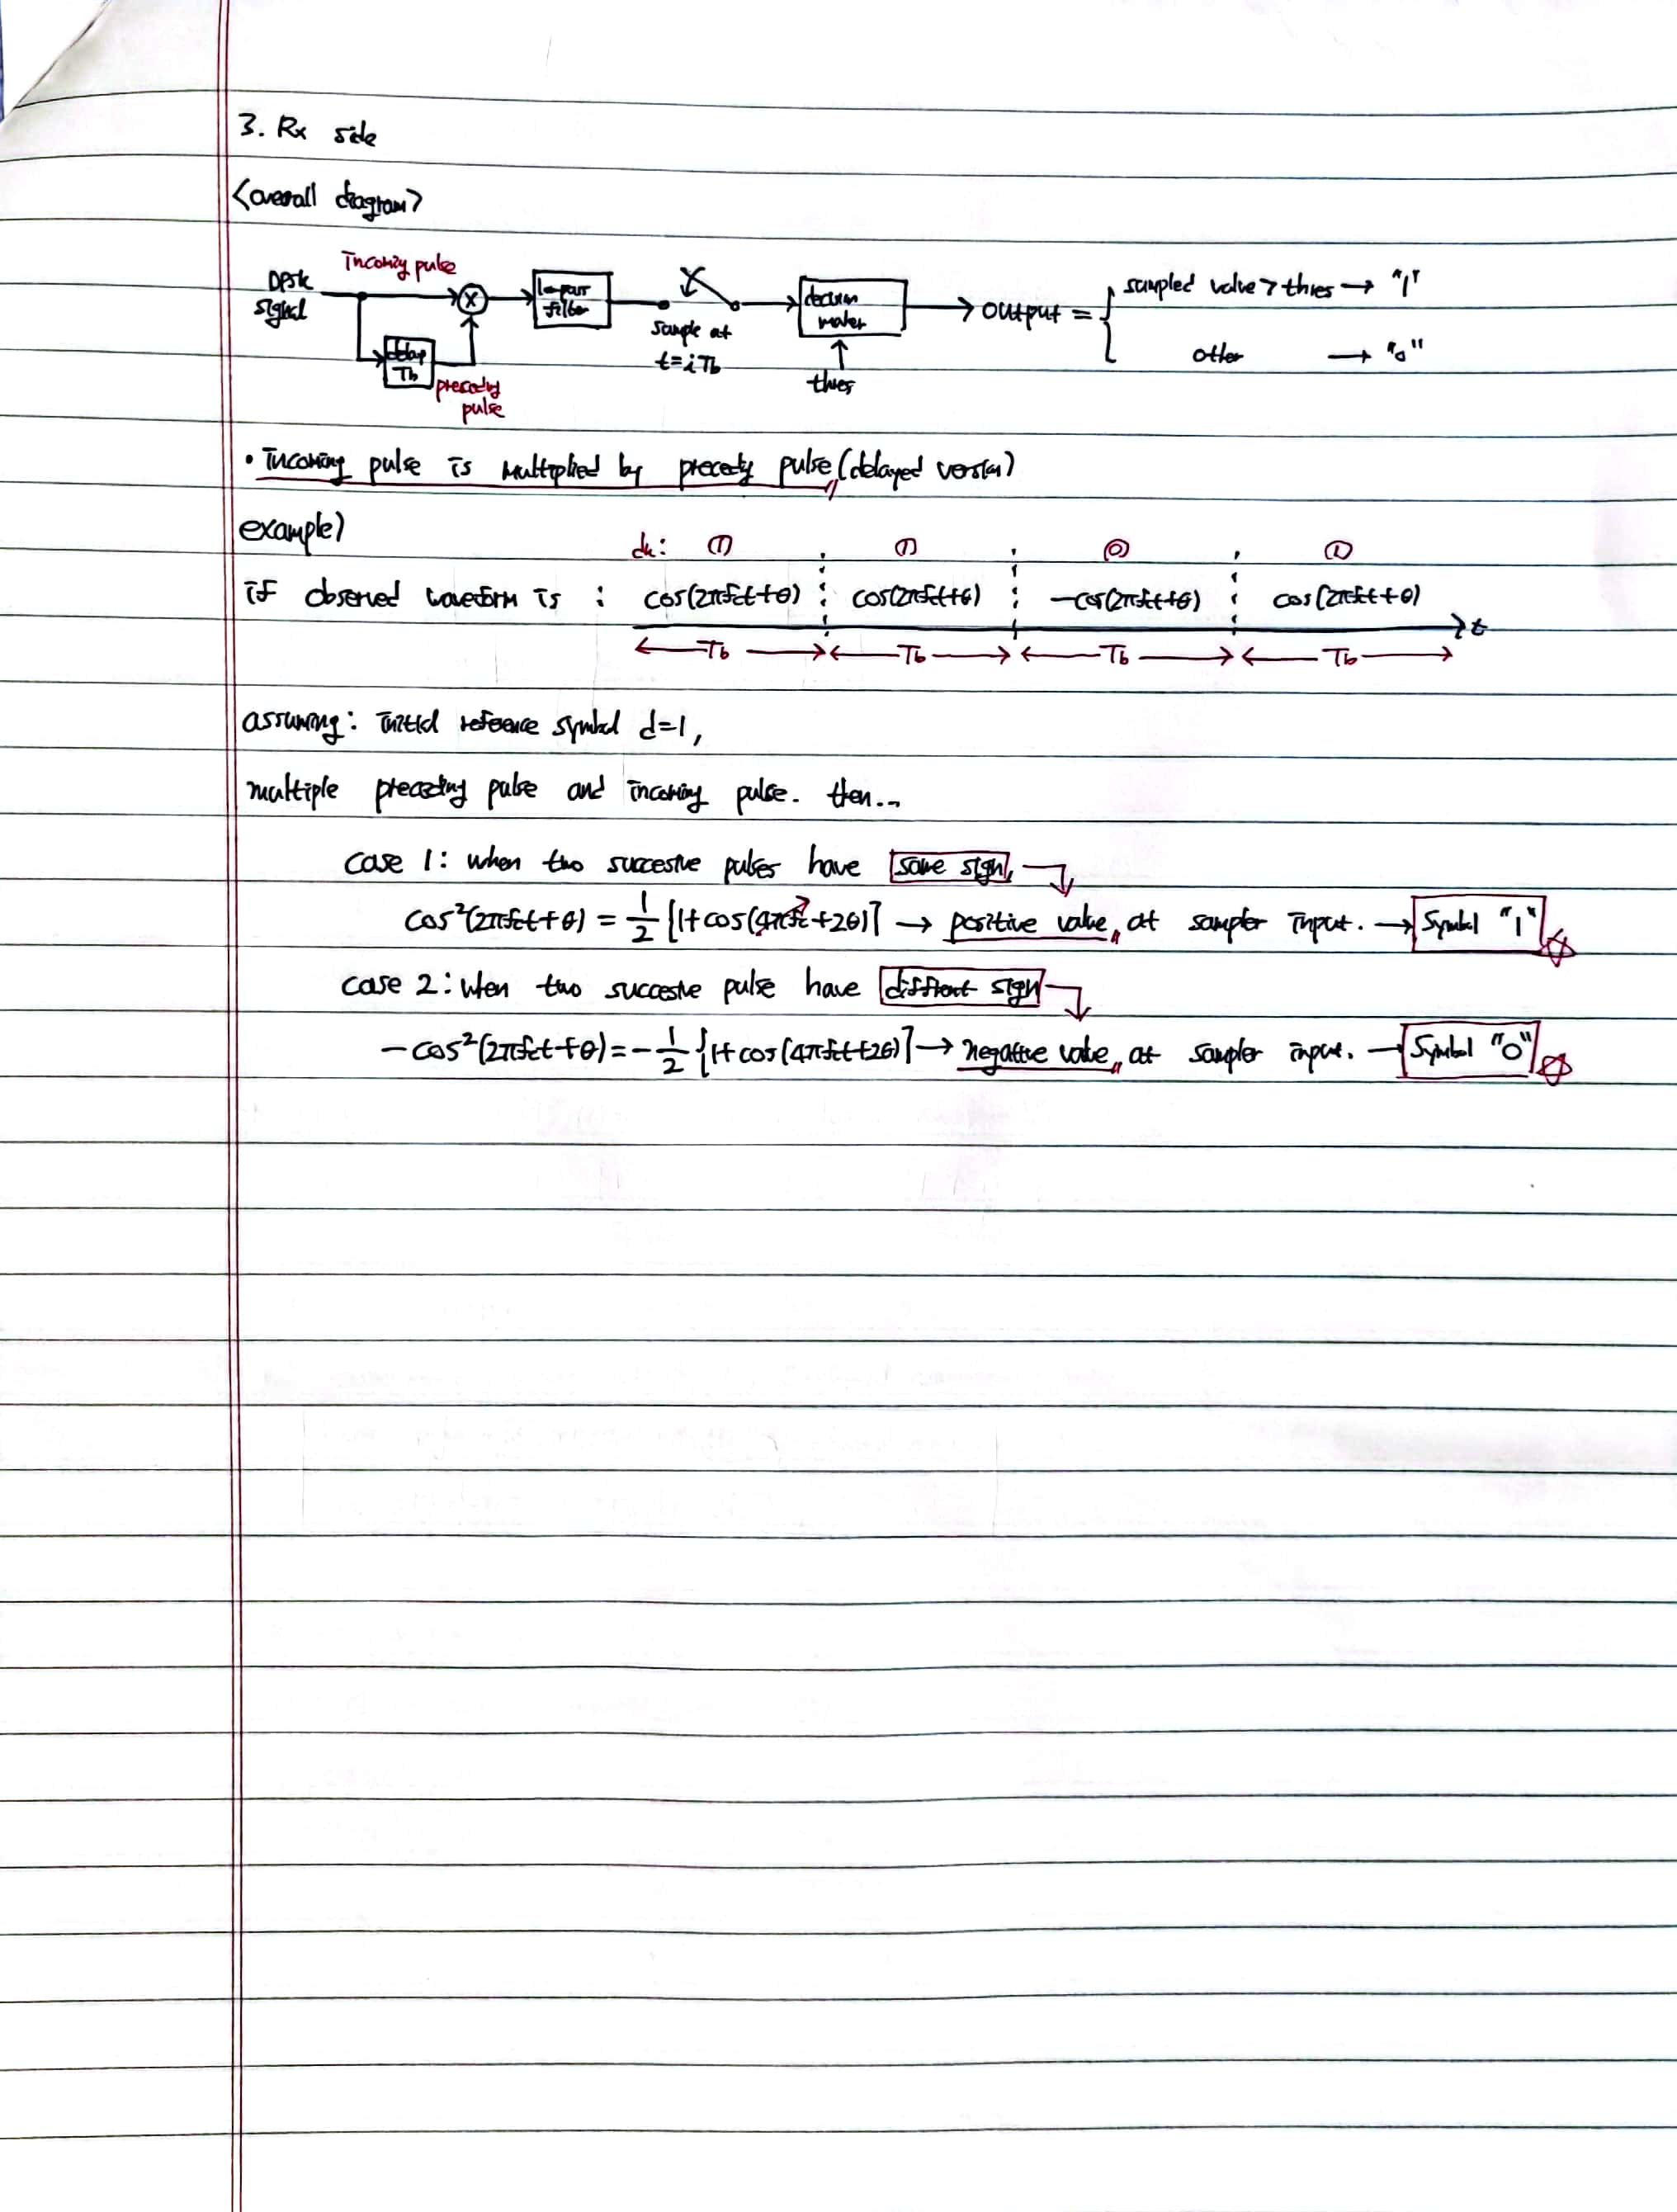 3. Rx side
<overall diagram>
DPSK signal
Incoming pulse
low-pass filter
sample at t=iTb
decision maker
thres
output = { sampled value > thres → "1"
other → "0"
delay Tb
preceding pulse
• Incoming pulse is multiplied by preceding pulse (delayed version)
example)
dk: ① ① ⓪ ①
if observed waveform is : cos(2πfct+θ) cos(2πfct+θ) -cos(2πfct+θ) cos(2πfct+θ) t
Tb Tb Tb Tb
assuming: initial reference symbol d=1,
multiple preceding pulse and incoming pulse. then...
case 1: when two succesive pulses have same sign,
cos²(2πfct+θ) = 1/2 {1+cos(4πfc+2θ)} → positive value, at sampler input. → Symbol "1"
case 2: when two succesive pulse have different sign
-cos²(2πfct+θ) = -1/2 {1+cos(4πfct+2θ)} → negative value, at sampler input. → Symbol "0"